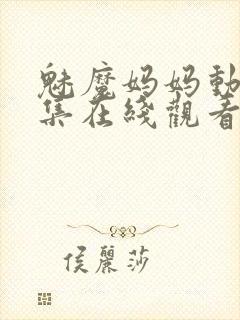 魅魔妈妈動
集在綫觀看
侯麗莎